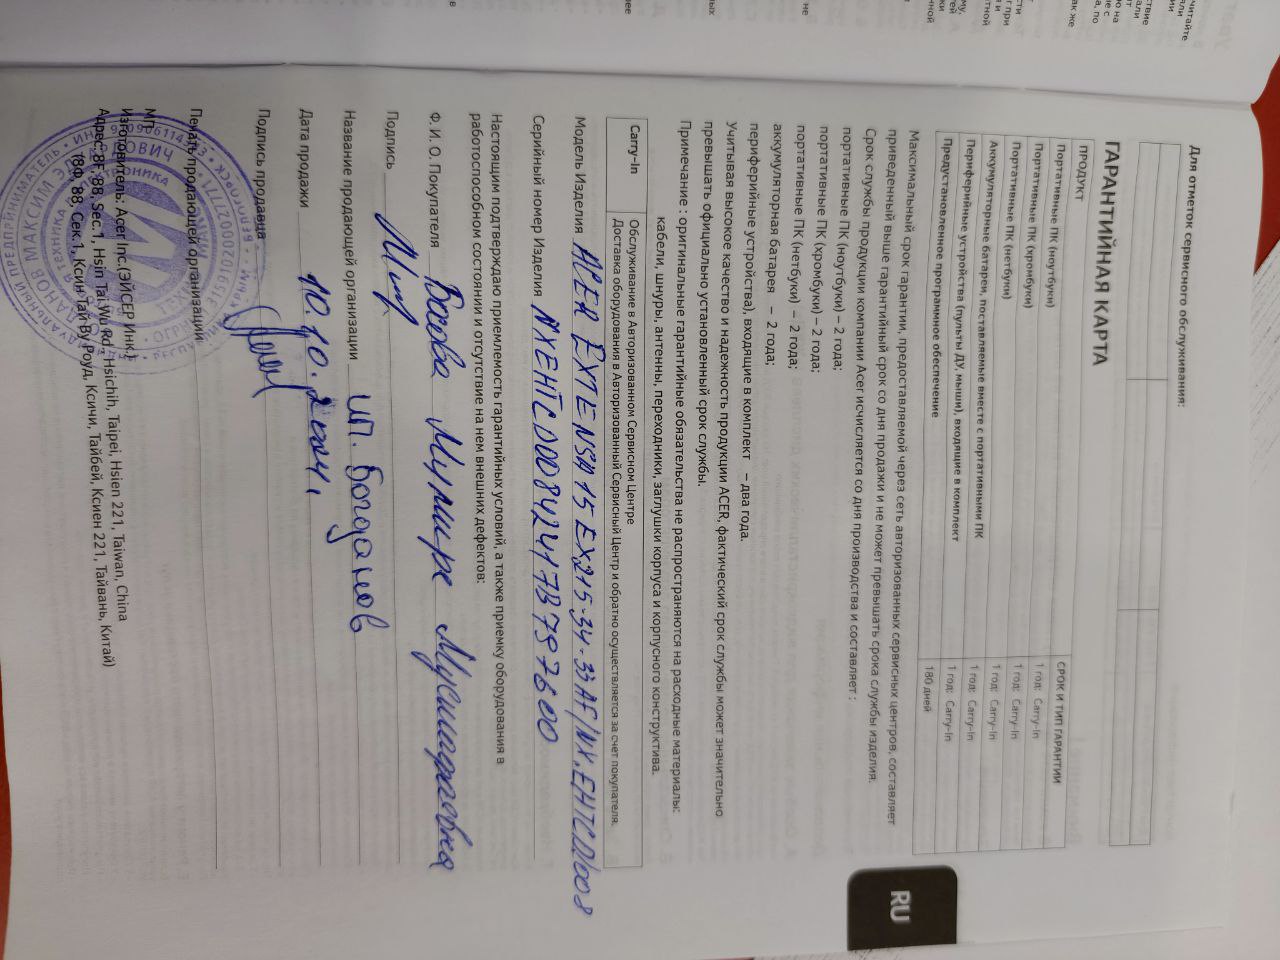 Для отметок сервисного обслуживания:
ГАРАНТИЙНАЯ КАРТА
ПРОДУКТ СРОК И ТИП ГАРАНТИИ
Портативные ПК (ноутбуки) 1 год: Carry-In
Портативные ПК (хромбуки) 1 год: Carry-In
Портативные ПК (нетбуки) 1 год: Carry-In
Аккумуляторные батареи, поставляемые вместе с портативными ПК 1 год: Carry-In
Периферийные устройства (пульты ДУ, мыши), входящие в комплект 1 год: Carry-In
Предустановленное программное обеспечение 180 дней
Максимальный срок гарантии, предоставляемой через сеть авторизованных сервисных центров, составляет
приведенный выше гарантийный срок со дня продажи и не может превышать срока службы изделия.
Срок службы продукции компании Acer исчисляется со дня производства и составляет :
портативные ПК (ноутбуки) – 2 года;
портативные ПК (хромбуки) – 2 года;
портативные ПК (нетбуки) – 2 года;
аккумуляторная батарея – 2 года;
периферийные устройства), входящие в комплект – два года.
Учитывая высокое качество и надежность продукции ACER, фактический срок службы может значительно
превышать официально установленный срок службы.
Примечание : оригинальные гарантийные обязательства не распространяются на расходные материалы:
кабели, шнуры, антенны, переходники, заглушки корпуса и корпусного конструктива.
Carry-In Обслуживание в Авторизованном Сервисном Центре
Доставка оборудования в Авторизованный Сервисный Центр и обратно осуществляется за счет покупателя.
Модель Изделия ACER EXTENSA 15 EX215-34-33AF/NX.EHTCD.008
Серийный номер Изделия NXEHTCD00842417B797600
Настоящим подтверждаю приемлемость гарантийных условий, а также приемку оборудования в
работоспособном состоянии и отсутствие на нем внешних дефектов:
Ф. И. О. Покупателя
Подпись
Название продающей организации ИП. Богданов
Дата продажи 10.10.2024г
Подпись продавца
Печать продающей организации
МП
Изготовитель: Acer Inc.(ЭЙСЕР Инк.)
Адрес: 8F, 88, Sec.1, Hsin Tai Wu Rd., Hsichih, Taipei, Hsien 221, Taiwan, China
(8Ф, 88, Сек.1, Ксин Тай Ву Роуд, Ксичи, Тайбей, Ксиен 221, Тайвань, Китай)
RU